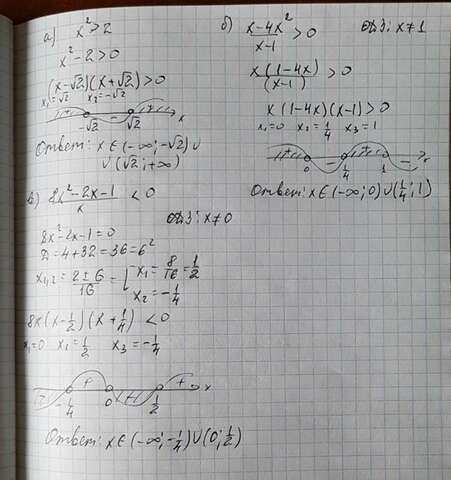 а) x² > 2
x² - 2 > 0
(x-√2)(x+√2) > 0
x₁=√2 x₂=-√2
+ - + x
-√2 √2
Ответ: x ∈ (-∞; -√2) ∪
∪ (√2; +∞)
б) x-4x² / x-1 > 0 ОДЗ: x≠1
x(1-4x) / (x-1) > 0
x(1-4x)(x-1) > 0
x₁=0 x₂=1/4 x₃=1
+ - + - x
0 1/4 1
Ответ: x ∈ (-∞; 0) ∪ (1/4; 1)
в) 8x²-2x-1 / x < 0
ОДЗ: x≠0
8x²-2x-1=0
D=4+32=36=6²
x₁,₂ = 2±6 / 16 = [ x₁ = 8/16 = 1/2
x₂ = -1/4
8x(x-1/2)(x+1/4) < 0
x₁=0 x₂=1/2 x₃=-1/4
- + - + x
-1/4 0 1/2
Ответ: x ∈ (-∞; -1/4) ∪ (0; 1/2)